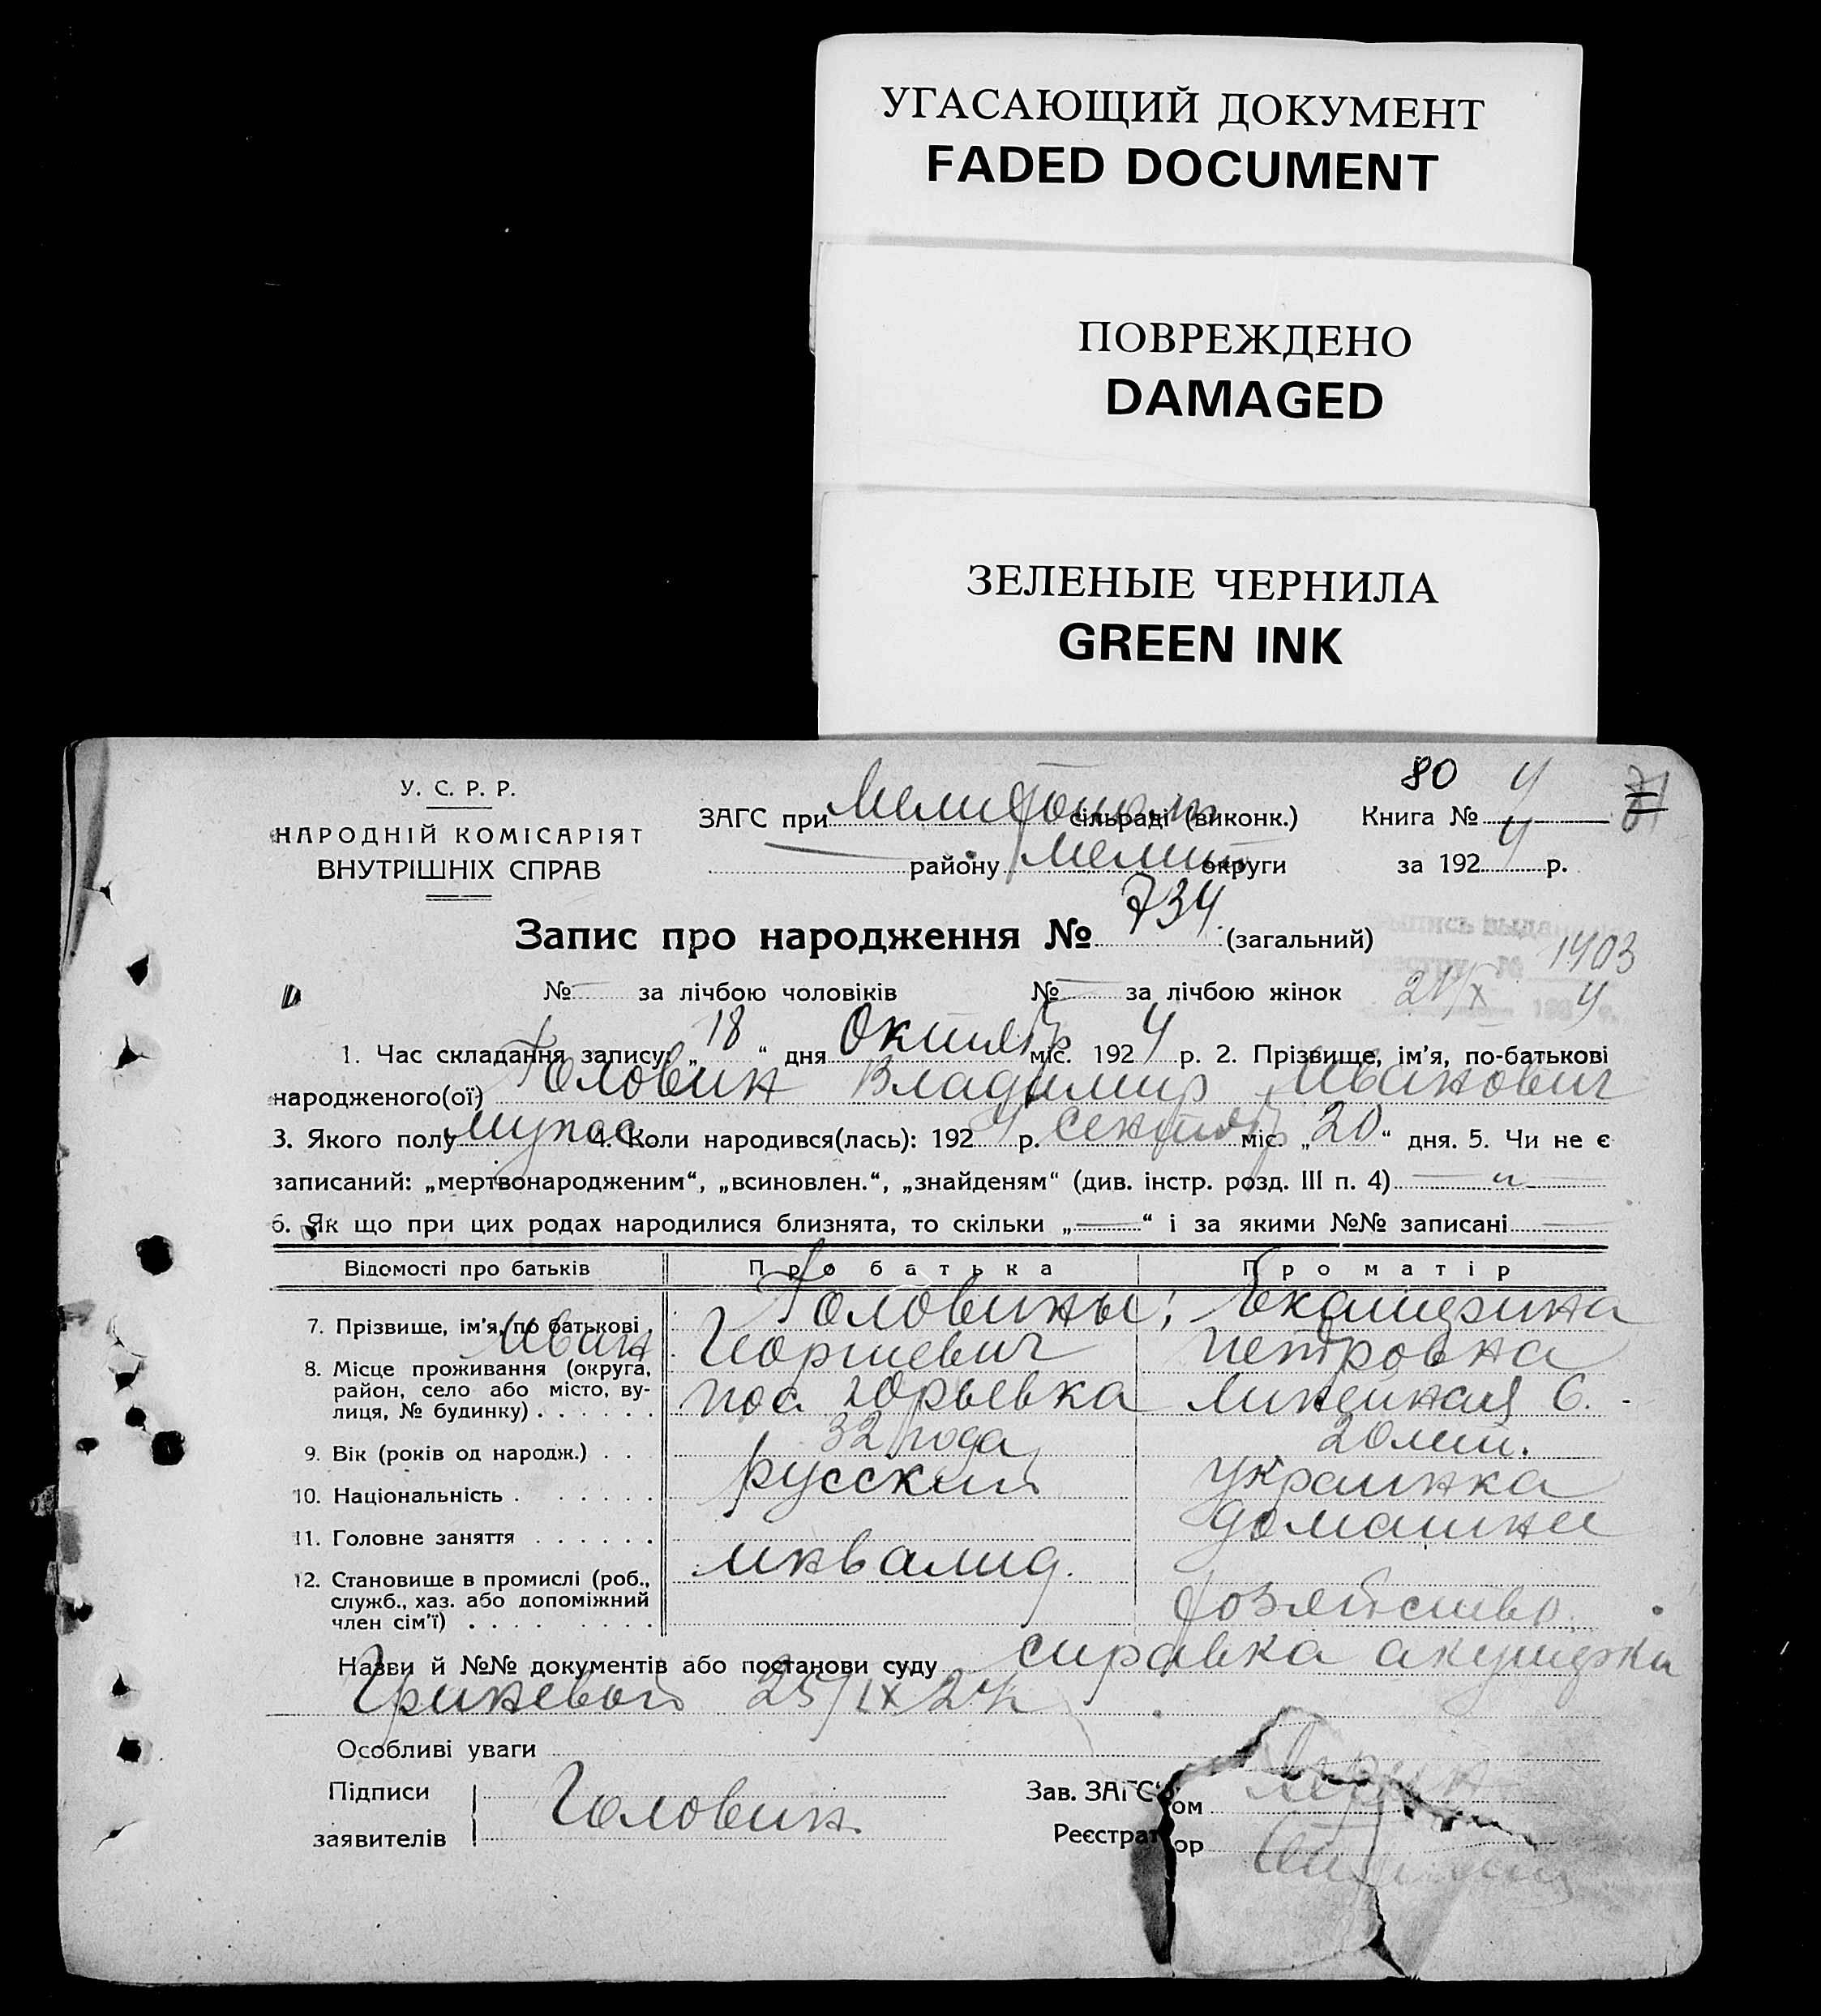 УГАСАЮЩИЙ ДОКУМЕНТ
FADED DOCUMENT
ПОВРЕЖДЕНО
DAMAGED
ЗЕЛЕНЫЕ ЧЕРНИЛА
GREEN INK
80 4
У. С. Р. Р.
НАРОДНІЙ КОМІСАРІЯТ
ВНУТРІШНІХ СПРАВ
ЗАГС при сільраді (виконк.) Книга №
району Мелит округи за 1924 р.
Запис про народження № 734. (загальний)
1403
№ — за лічбою чоловіків № — за лічбою жінок 21/X 4
1. Час складання запису: „18“ дня Октябр міс. 1924 р. 2. Прізвище, ім’я, по-батькові
народженого(ої) Головин Владимир Иванович
3. Якого полу мужс 4. Коли народився(лась): 1924 р. Сентябр міс. „20“ дня. 5. Чи не є
записаний: „мертвонародженим“, „всиновлен.“, „знайденям“ (див. інстр. розд. III п. 4) — „ —
6. Як що при цих родах народилися близнята, то скільки „—“ і за якими №№ записані —
Відомості про батьків Про батька Про матір
7. Прізвище, ім’я, по батькові Головины; Екатерина
Иван Георгиевич Петровна
8. Місце проживання (округа, район, село або місто, вулиця, № будинку) пос Юрьевка Линейная 6.
9. Вік (років од народж.) 32 года 20 лет.
10. Національність русский украинка
11. Головне заняття инвалид. домашнее
12. Становище в промислі (роб., служб., хаз. або допоміжний член сім’ї) хозяйство
Назви й №№ документів або постанови суду справка акушерки
Гриневой 25/IX 24 г
Особливі уваги
Підписи
заявителів Головин.
Зав. ЗАГС’ом
Реєстратор